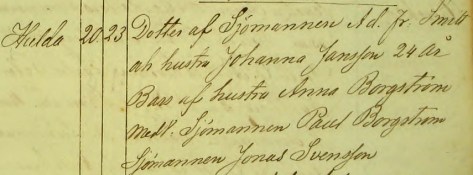 Hulda 20 23 Dotter af Sjömannen Ad. Fr. Smitt
och hustru Johanna Jansson 24 år
Bars af hustru Anna Borgström
medv. Sjömannen Paul Borgström
Sjömannen Jonas Svensson